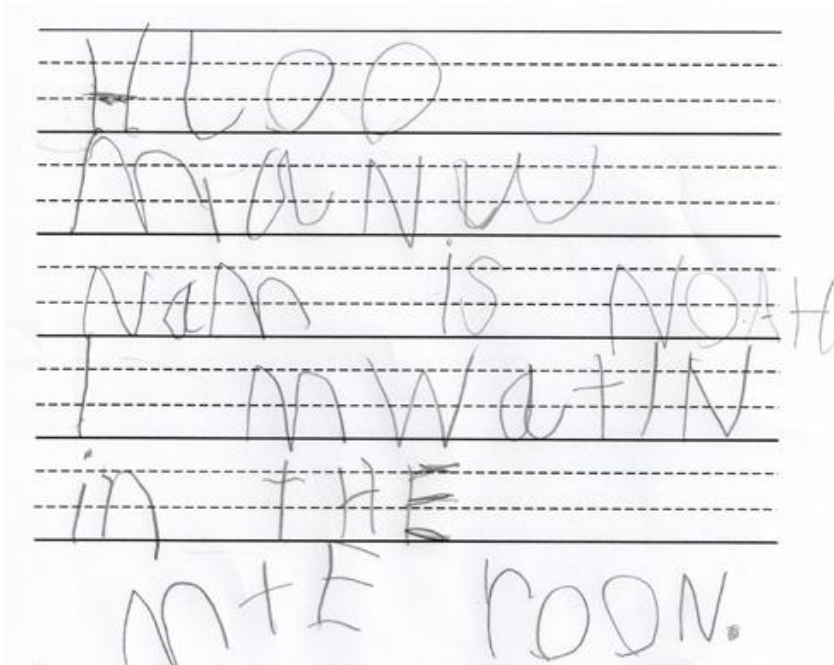 HLOO
mANW
Nam is NOAH
I mWatIN
in tHE
mtE rOON.